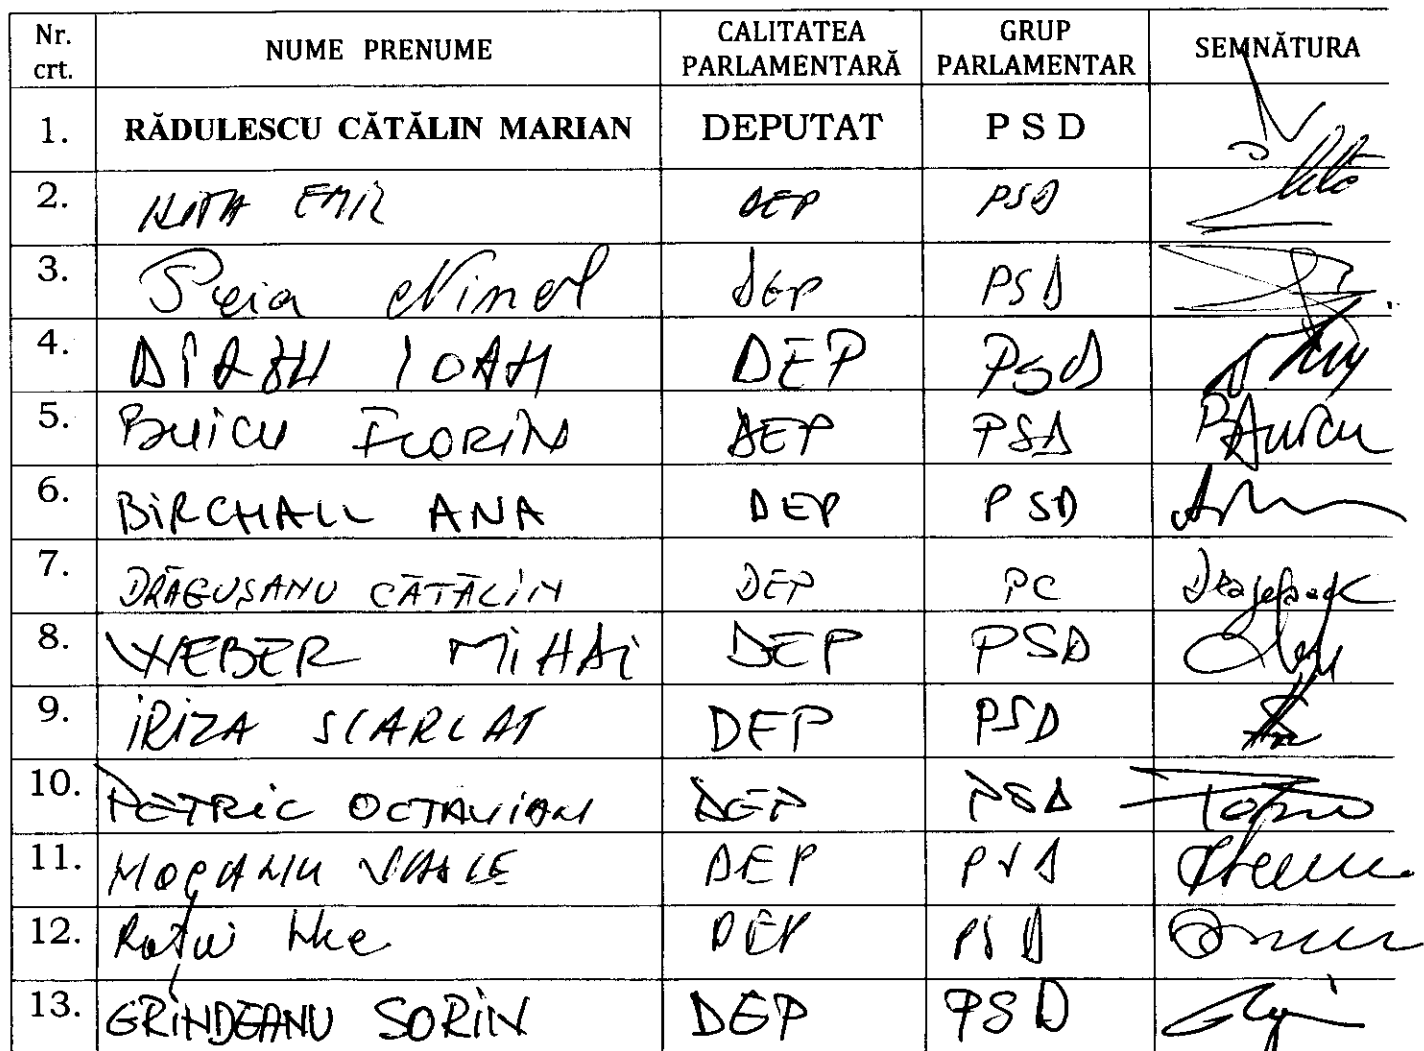 Nr. crt. NUME PRENUME CALITATEA PARLAMENTARĂ GRUP PARLAMENTAR SEMNĂTURA
1. RĂDULESCU CĂTĂLIN MARIAN DEPUTAT P S D
2. NITA EMIL DEP PSD
3. Peia Ninel DEP PSD
4. DIRZU IOAN DEP PSD
5. BUICU FLORIN DEP PSD
6. BIRCHALL ANA DEP PSD
7. DRĂGUȘANU CĂTĂLIN DEP PC
8. WEBER MIHAI DEP PSD
9. IRIZA SCARLAT DEP PSD
10. PETRIC OCTAVIAN DEP PSD
11. MOCANU VASILE DEP PSD
12. DEP PSD
13. GRINDEANU SORIN DEP PSD